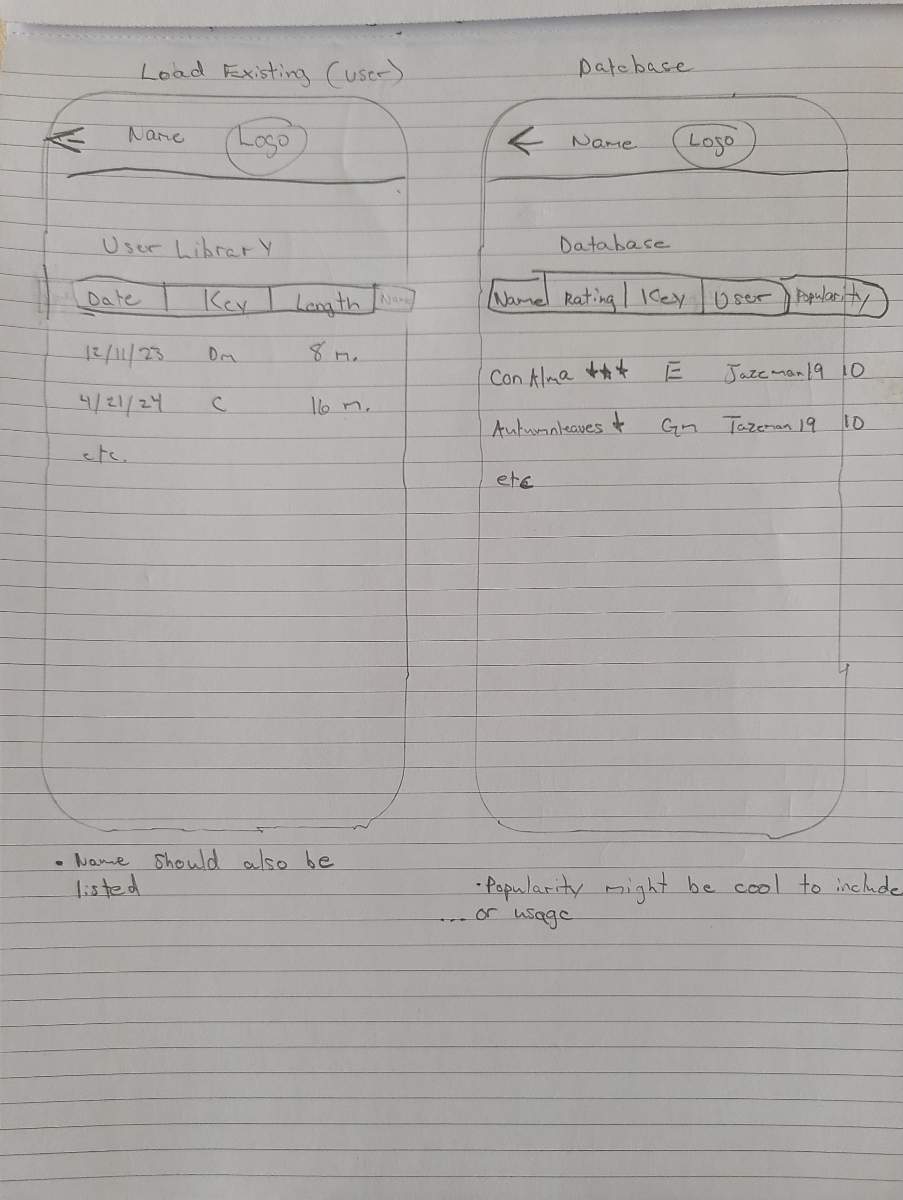 Load Existing (user)
Name Logo
User Library
Date Key Length Name
12/11/23 Dm 8 m.
4/21/24 C 16 m.
etc.
• Name should also be
listed
Database
Name Logo
Database
Name Rating Key User Popularity
Con Alma ★★★ E Jazzman19 10
Autumnleaves ★ Gm Jazzman19 10
etc
• Popularity might be cool to include
... or usage